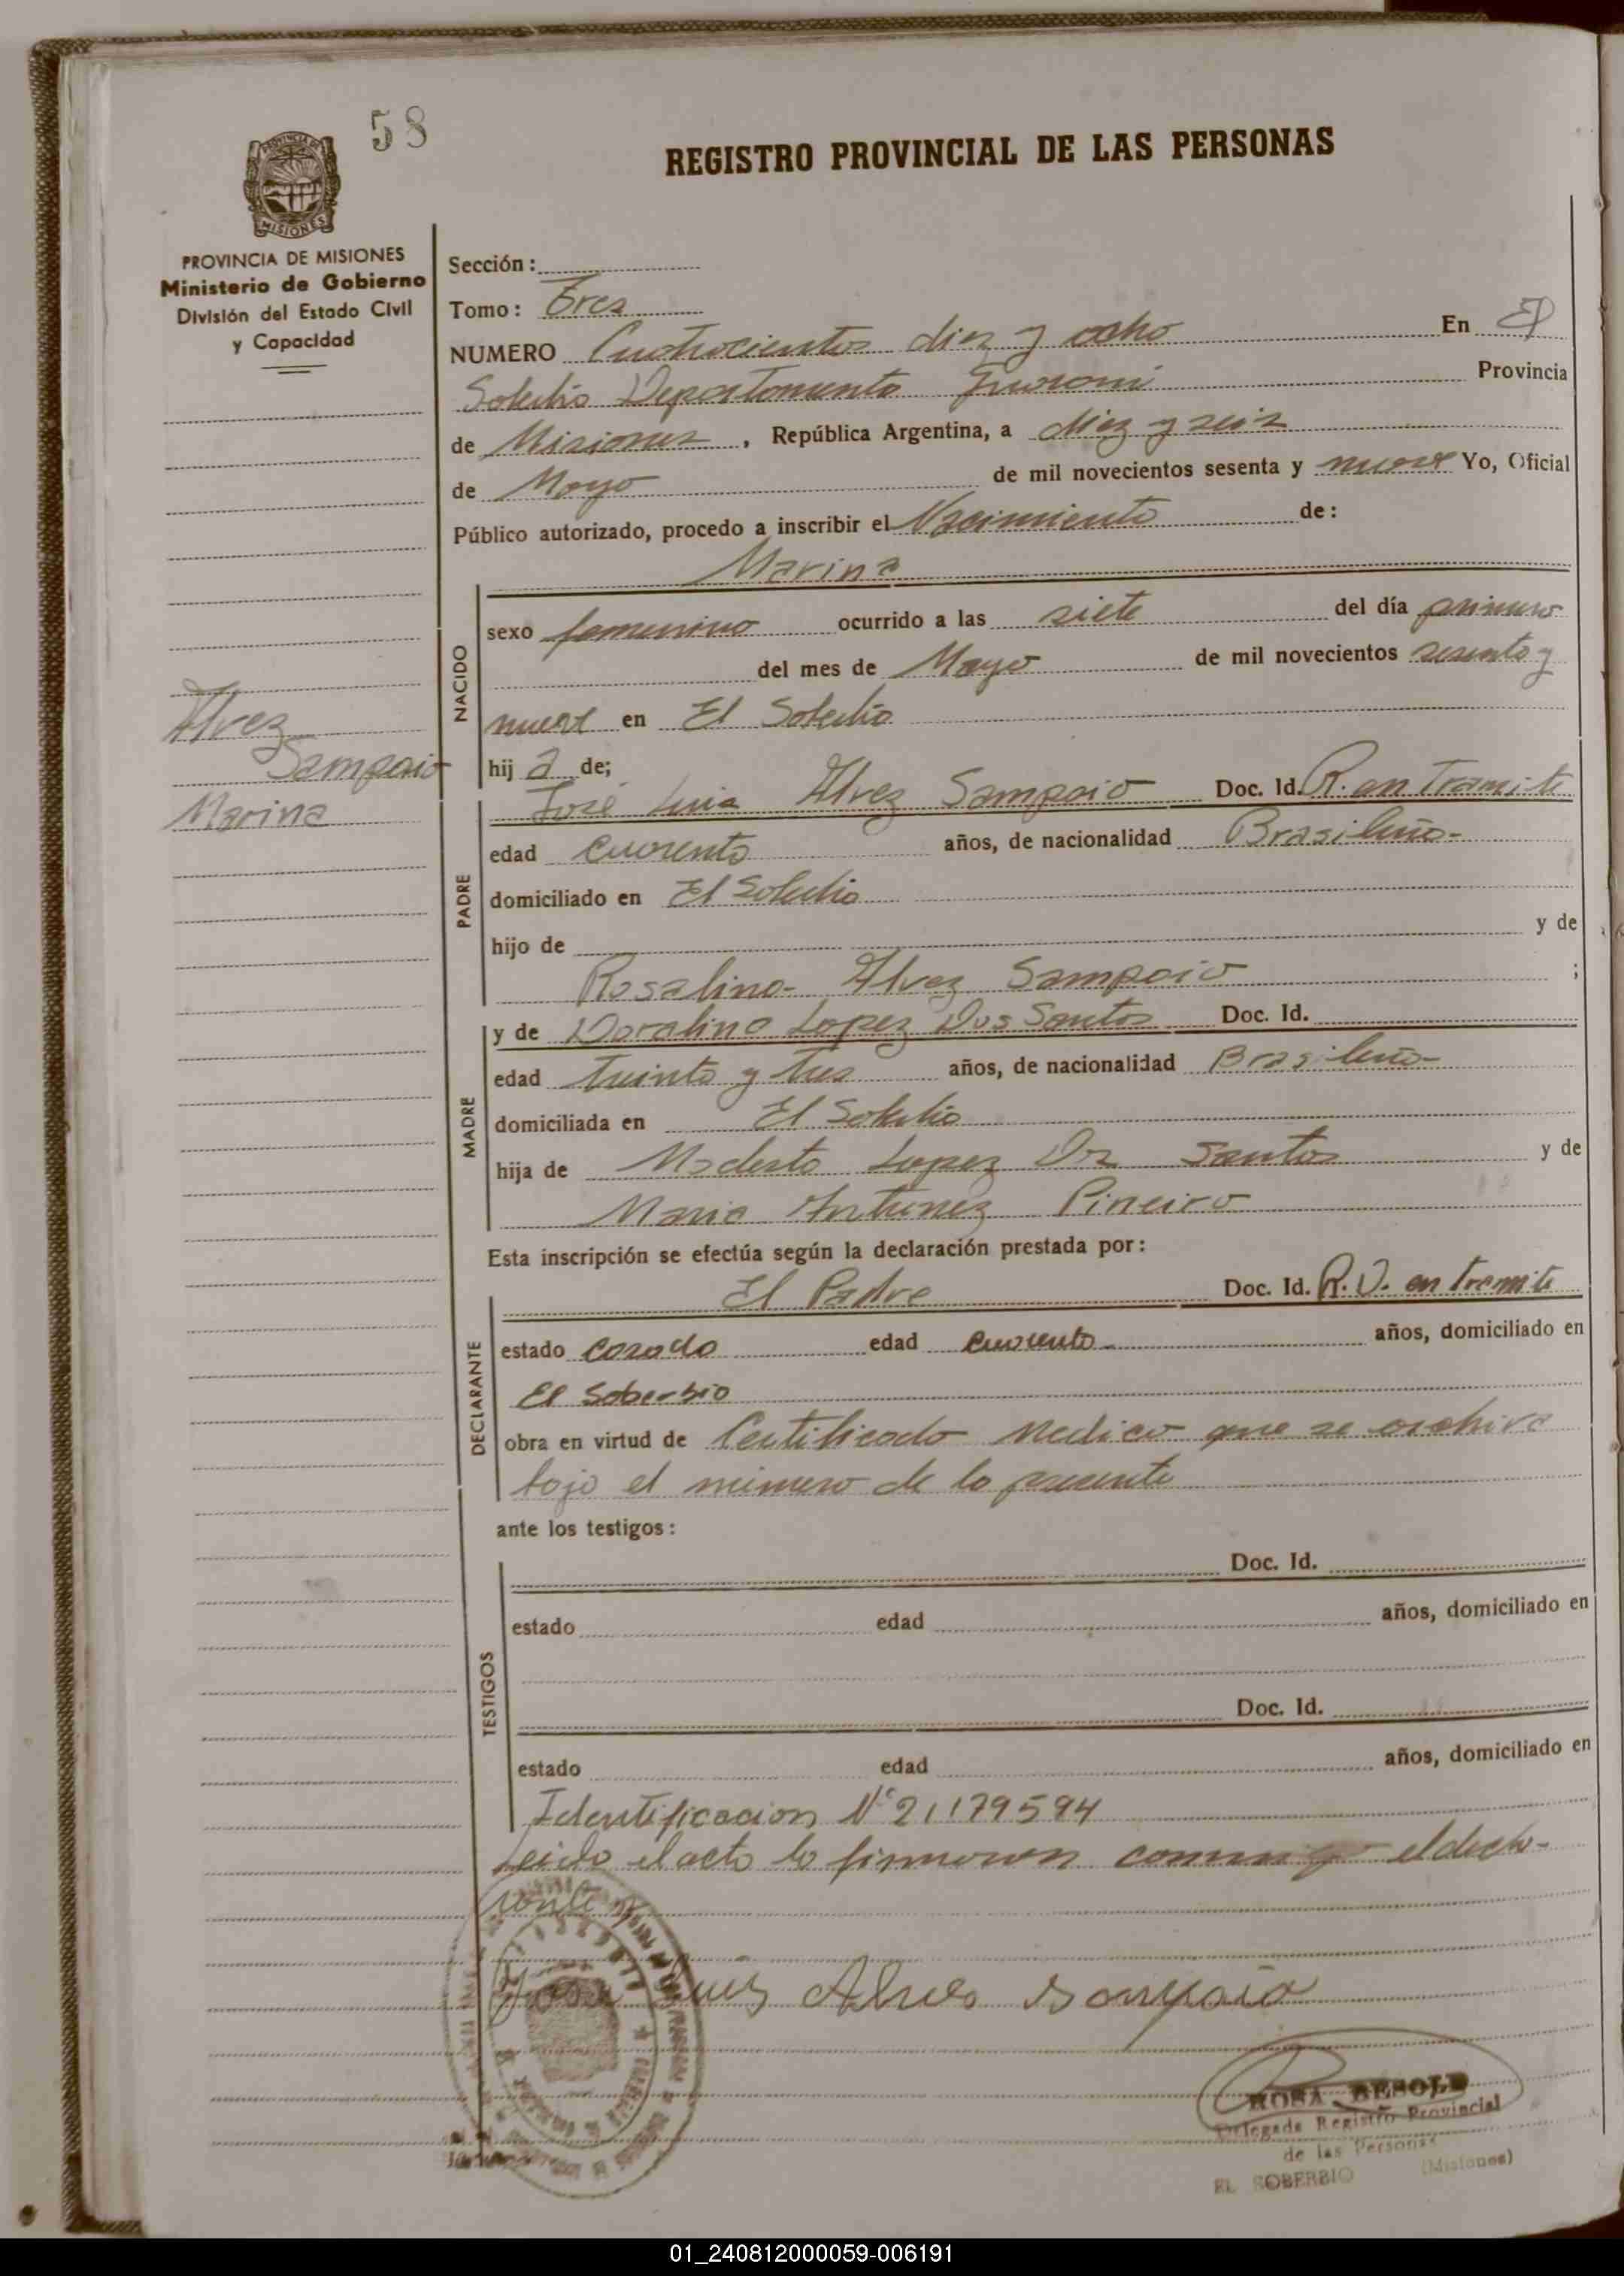 58
REGISTRO PROVINCIAL DE LAS PERSONAS
PROVINCIA DE
MISIONES
PROVINCIA DE MISIONES
Ministerio de Gobierno
División del Estado Civil
y Capacidad
Sección:
Tomo: Tres
NUMERO Cuatrocientos diez y ocho En El
Soberbio Departamento Guarani Provincia
de Misiones, República Argentina, a diez y seis
de Mayo de mil novecientos sesenta y nueve Yo, Oficial
Público autorizado, procedo a inscribir el Nacimiento de:
Marina
NACIDO
sexo femenino ocurrido a las siete del día primero
del mes de Mayo de mil novecientos sesenta y
nueve en El Soberbio
hij a de;
Alvez
Sampaio
Marina
PADRE
José Luis Alvez Sampaio Doc. Id. R. en Tramite
edad cuarenta años, de nacionalidad Brasileña-
domiciliado en El Soberbio
hijo de y de
Rosalina- Alvez Sampaio ;
MADRE
y de Doralina Lopez Dos Santos Doc. Id.
edad treinta y tres años, de nacionalidad Brasileña-
domiciliada en El Soberbio
hija de Modesto Lopez Dos Santos y de
Maria Antunez Pineiro
Esta inscripción se efectúa según la declaración prestada por:
DECLARANTE
El Padre Doc. Id. R. D. en tramite
estado casado edad cuarenta años, domiciliado en
El Soberbio
obra en virtud de Certificado Medico que se archiva
bajo el número de la presente
ante los testigos:
TESTIGOS
Doc. Id.
estado edad años, domiciliado en
Doc. Id.
estado edad años, domiciliado en
Identificacion Nº 21179594
Leida el acta la firmaron conmigo el decla-
rante
José Luis Alves Sampaio
ROSA BESOLD
Delegada Registro Provincial
de las Personas
EL SOBERBIO (Misiones)
01_240812000059-006191